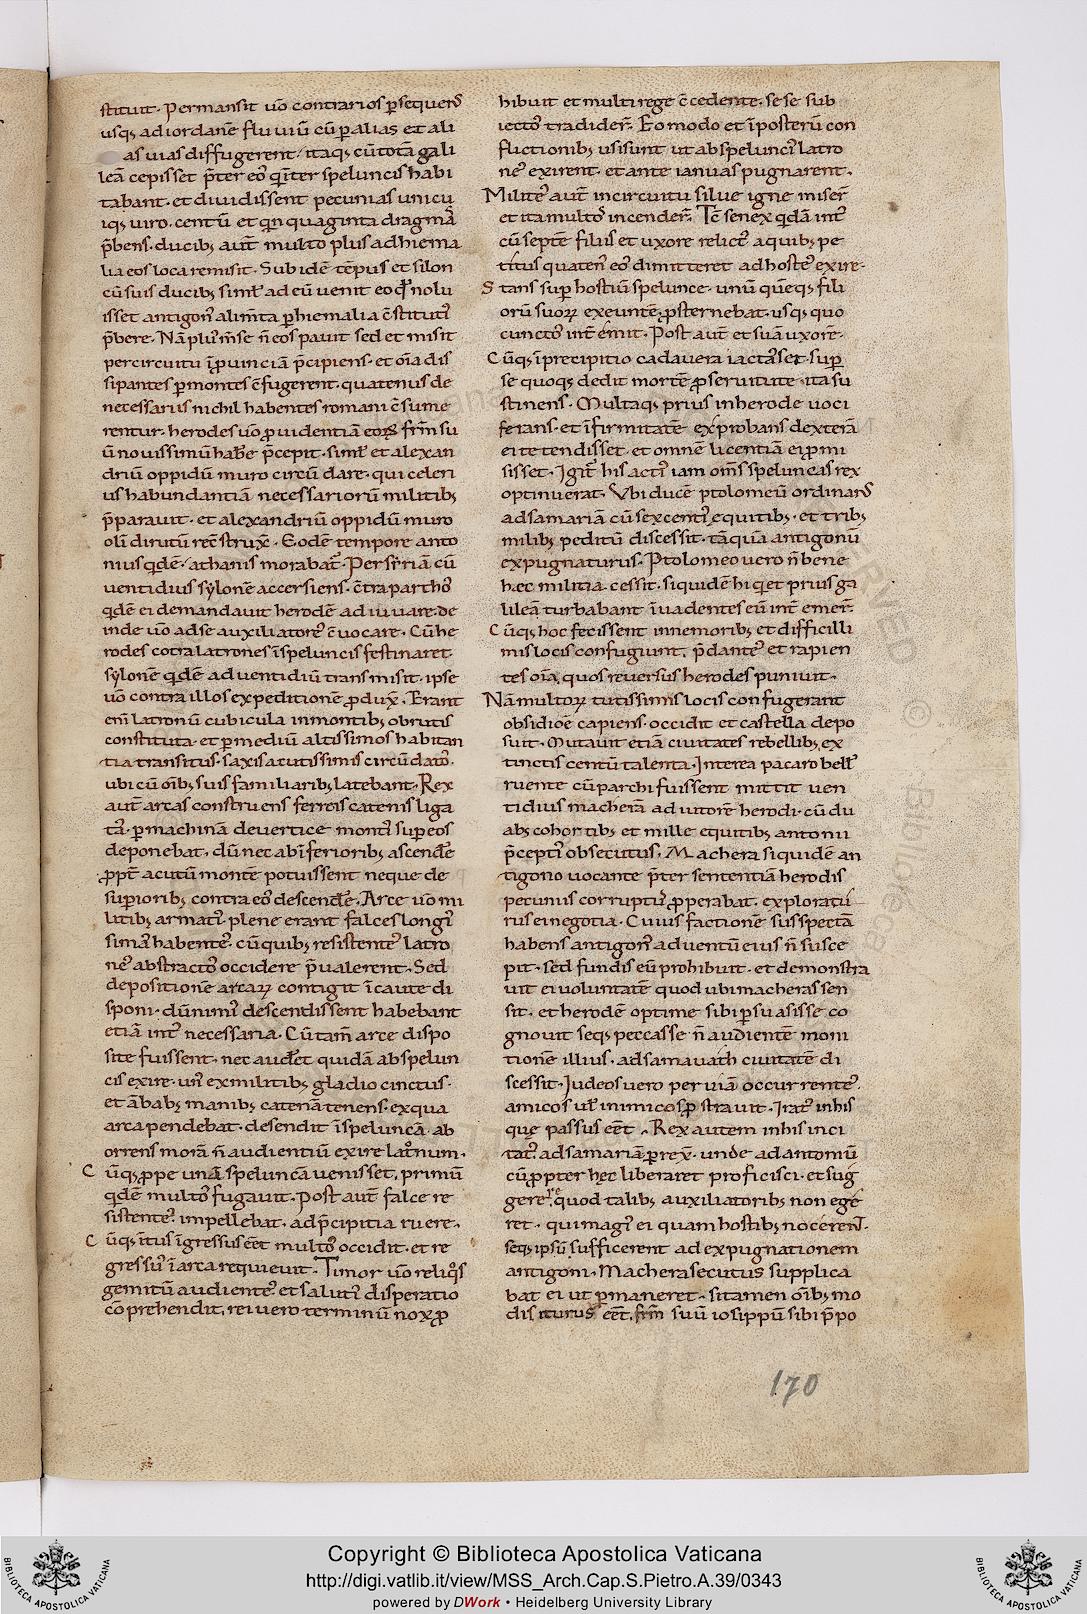 stituit. Permansit uō contrarios ꝑsequens
usqꝫ ad iordanē fluuiū cū ꝑ alias et ali
as uias diffugerent. itaqꝫ cū totā gali
leā cepisset p̄ter eos qi int̄ speluncis habi
tabant. et diuidissent pecunias unicu
iqꝫ uiro. centū et qn̄quaginta dragmas
p̄bens. ducibꝫ aut̄ multo plus ad hiema
lia eos loca remisit. Sub idē tēpus et silon
cū suis ducibꝫ siml̄ ad eū uenit eo qd̄ nolu
isset antigon᷒ alim̄ta ꝑ hiemalia c̄stitutis
p̄bere. Nā pl᷒ uno m̄se n̄ eos pauit sed et misit
per circuitu ī ꝓuinciā p̄cipiens. et oīa dis
sipantes ꝑ montes c̄fugerent. quatenus de
necessariis nichil habentes romani c̄sume
rentur. herodes uō ꝓuidentiā eoꝝ frīm su
ū nouissimū habe p̄cepit. siml̄ et alexan
driū oppidū muro circū dare. qui celeri
us habundantiā necessariorū militibꝫ
p̄parauit. et alexandriū oppidū muro
olī dirutū recc̄struxit. Eodē tempore anto
nius qdē athanis morabat᷒. Per siriā cū
uentidius sylonē accersiens. c̄tra parthos
qdē ei demandauit herodē adiuuare. de
inde uō ad se auxiliatores c̄uocare. Cū he
rodes cōtra latrones ī speluncis festinaret.
sylonē qdē ad uentidiū transmisit. ipse
uō contra illos expeditionē ꝓduxit. Erant
enī latronū cubicula in montibꝫ obrutis
constituta. et ꝑ mediū altissimos habitan
tia transitus. saxis acutissimis circūdatos.
ubi cū oībꝫ suis familiaribꝫ latebant. Rex
aut̄ arcas construens ferreis catenis liga
tas. ꝑ machinā de uertice montis sup eos
deponebat. dū nec ab īferioribꝫ ascendere
ꝓpt̄ acutū montē potuissent neque de
superioribꝫ contra eos descendere. Arce uō mi
litibꝫ armatis plene erant falces longis
simas habentes. cū quibꝫ resistentes latro
nes abstractos occidere p̄ualerent. Sed
depositionē arcarꝫ contigit īcaute di
sponi. dū nimis descendissent habebant
etiā int̄ necessaria. Cū tam̄ arce dispo
site fuissent. nec auderet quidā ab spelun
cis exire. un᷒ ex militibꝫ gladio cinctus.
et ābabꝫ manibꝫ catenā tenens. ex qua
arca pendebat. desendit ī speluncā. ab
orrens morā n̄ audientiū exire latronum.
Cūqꝫ ꝓpe unā speluncā uenisset, primū
qdē multos fugauit. Post aut̄ falce re
sistentes impellebat. ad p̄cipitia ruere.
Cūqꝫ ītus īgressus eēt multos occidit. et re
gressus ī arca requieuit. Timor uō reliqos
gemitū audientes et salutis disperatio
cōprehendit. rei uero terminū nox ꝓ
hibuit et multi rege c̄cedente. sese sub
iectos tradider̄. Eo modo et ī posterū con
flictionibꝫ usi sunt ut ab speluncis latro
nes exirent. et ante ianuas pugnarent.
Milites aut̄ in circuitu silue igne miser̄
et ita multos incender̄. Tc̄ senex qdā int̄
cū septē filiis et uxore relictus a quibꝫ pe
titus quaten᷒ eos dimitteret ad hostes exire.
Stans sup hostiū spelunce. unū quēqꝫ fili
orū suorꝫ exeuntē ꝓsternebat. usqꝫ quo
cunctos int̄emit. Post aut̄ et suā uxorē.
Cūqꝫ ī precipitio cadauera iactasset. sup
se quoqꝫ dedit mortē ꝓ seruitute. ita su
stinens. Multaqꝫ prius in herode uoci
ferans. et īfirmitatē exprobans dexterā
ei tetendisset. et omnē licentiā ei ꝓmi
sisset. Igit᷒ his actis iam oms̄ speluncas rex
optinuerat. Vbi ducē ptolomeū ordinans
ad samariā cū sexcentis equitibꝫ. et tribꝫ
milibꝫ peditū discessit. tāquā antigonū
expugnaturus. Ptolomeo uero n̄ bene
hæc militia cessit. siquidē hi qi et prius ga
lileā turbabant īuadentes eū int̄emer̄.
Cūqꝫ hoc fecissent in nemoribꝫ et difficilli
mis locis confugiunt. p̄dantes et rapien
tes oīa, quos reuersus herodes puniuit.
Nā multorꝫ tutissimis locis confugerant
obsidiōe capiens. occidit et castella depo
suit. Mutauit etiā ciuitates rebellibꝫ ex
tinctis centū talenta. Interea pacaro bello
ruente cū parchi fuissent mittit uen
tidius macherā ad iutorē herodi. cū du
abꝫ cohortibꝫ et mille equitibꝫ antonii
p̄ceptis obsecutus. Machera siquidē an
tigono uocante p̄ter sententiā herodis
pecuniis corruptus ꝓperabat. exploratu
rus ei negotia. Cuius factionē suspectā
habens antigon᷒ aduentū eius n̄ susce
pit. sed fundis eū prohibuit. et demonstra
uit ei uoluntatē quod ubi macheras sen
sit. et herodē optime sibi ꝑsuasisse co
gnouit seqꝫ peccasse n̄ audientē moni
tionē illius. ad samauath ciuitatē di
scessit. Iudeos uero per uiā occurrentes.
amicos ul̄ inimicos ꝓstrauit. Iratus in his
quę passus eēt. Rex autem in his inci
tatus. ad samariā ꝑrexit. unde ad antoniū
cū ꝓpter hęc liberaret proficisci. et sug
gereret. quod talibꝫ auxiliatoribꝫ non ege
ret. qui magis ei quam hostibꝫ nocerent.
seqꝫ ipsū sufficerent ad expugnationem
antigoni. Machera secutus supplica
bat ei ut ꝑmaneret. si tamen oībꝫ mo
dis iturus eēt. frīm suū iosippū sibi p̄po
170
Copyright © Biblioteca Apostolica Vaticana
http://digi.vatlib.it/view/MSS_Arch.Cap.S.Pietro.A.39/0343
powered by DWork • Heidelberg University Library
BIBLIOTECA APOSTOLICA VATICANA
BIBLIOTECA APOSTOLICA VATICANA